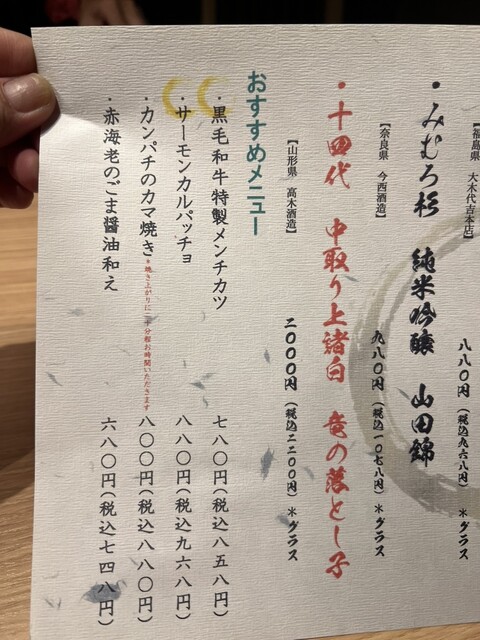 【福島県 大木代吉本店】
八八〇円（税込九六八円）＊グラス
・みむろ杉 純米吟醸 山田錦
【奈良県 今西酒造】
九八〇円（税込一〇七八円）＊グラス
・十四代 中取り上諸白 竜の落とし子
【山形県 高木酒造】
二〇〇〇円（税込二二〇〇円）＊グラス
おすすめメニュー
・黒毛和牛特製メンチカツ 七八〇円（税込八五八円）
・サーモンカルパッチョ 八八〇円（税込九六八円）
・カンパチのカマ焼き＊焼き上がりに二十分程お時間いただきます 八〇〇円（税込八八〇円）
・赤海老のごま醤油和え 六八〇円（税込七四八円）